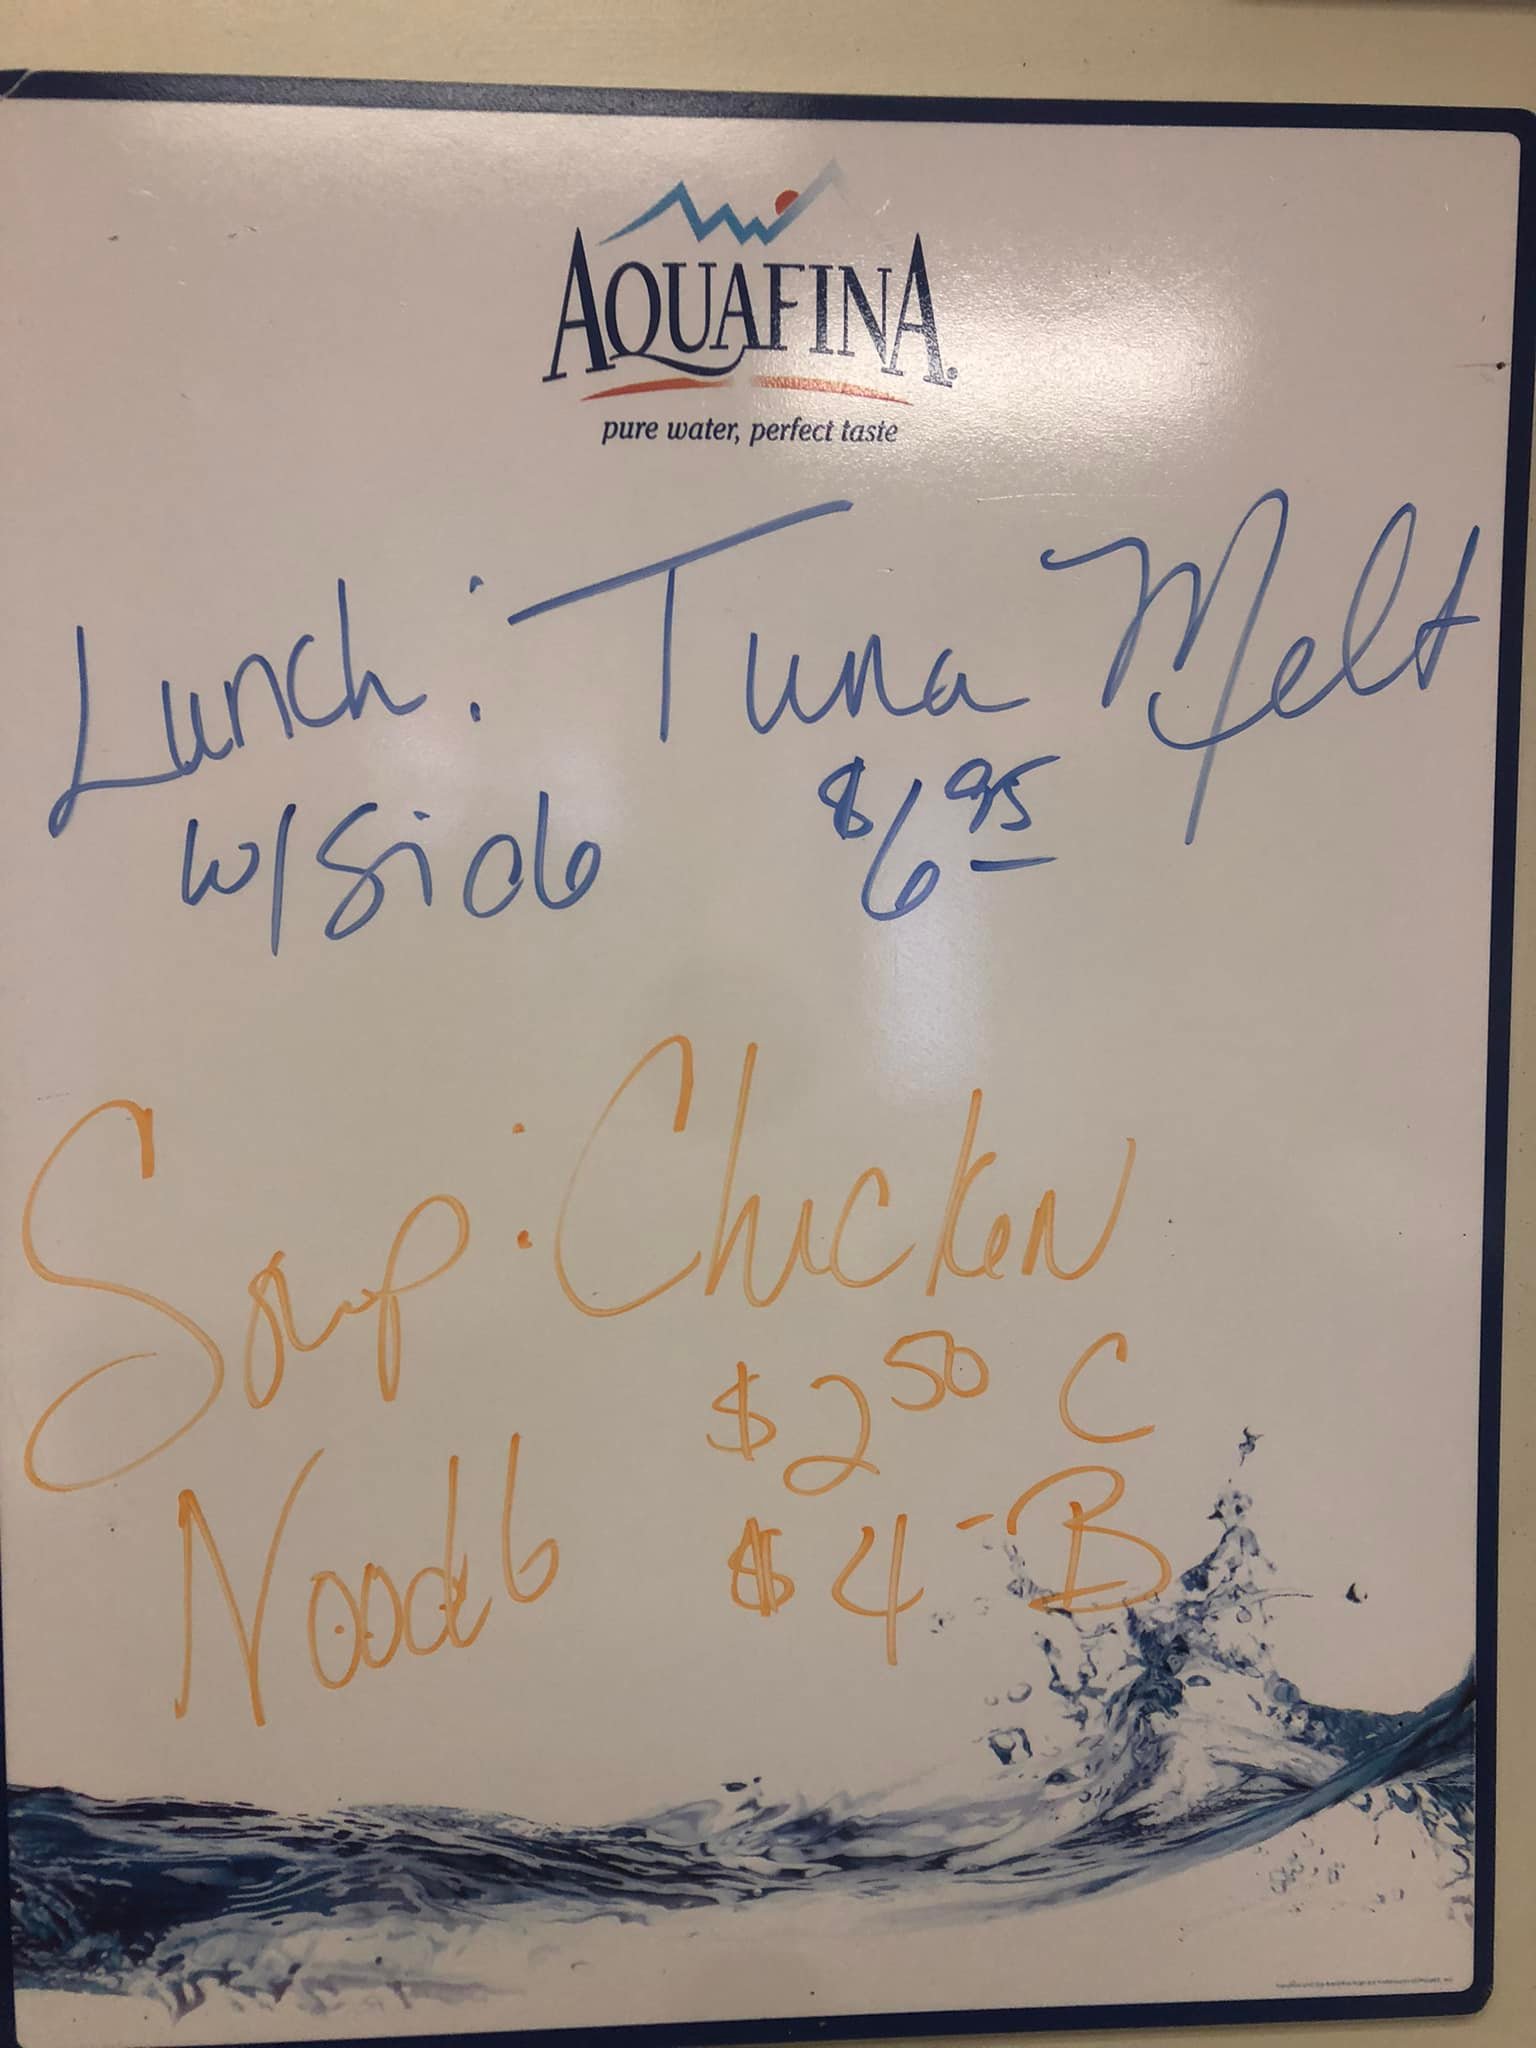 AQUAFINA
pure water, perfect taste
Lunch: Tuna Melt
w/Side $6 95
Soup: Chicken
$2 50 C
Noodle
$4 - B